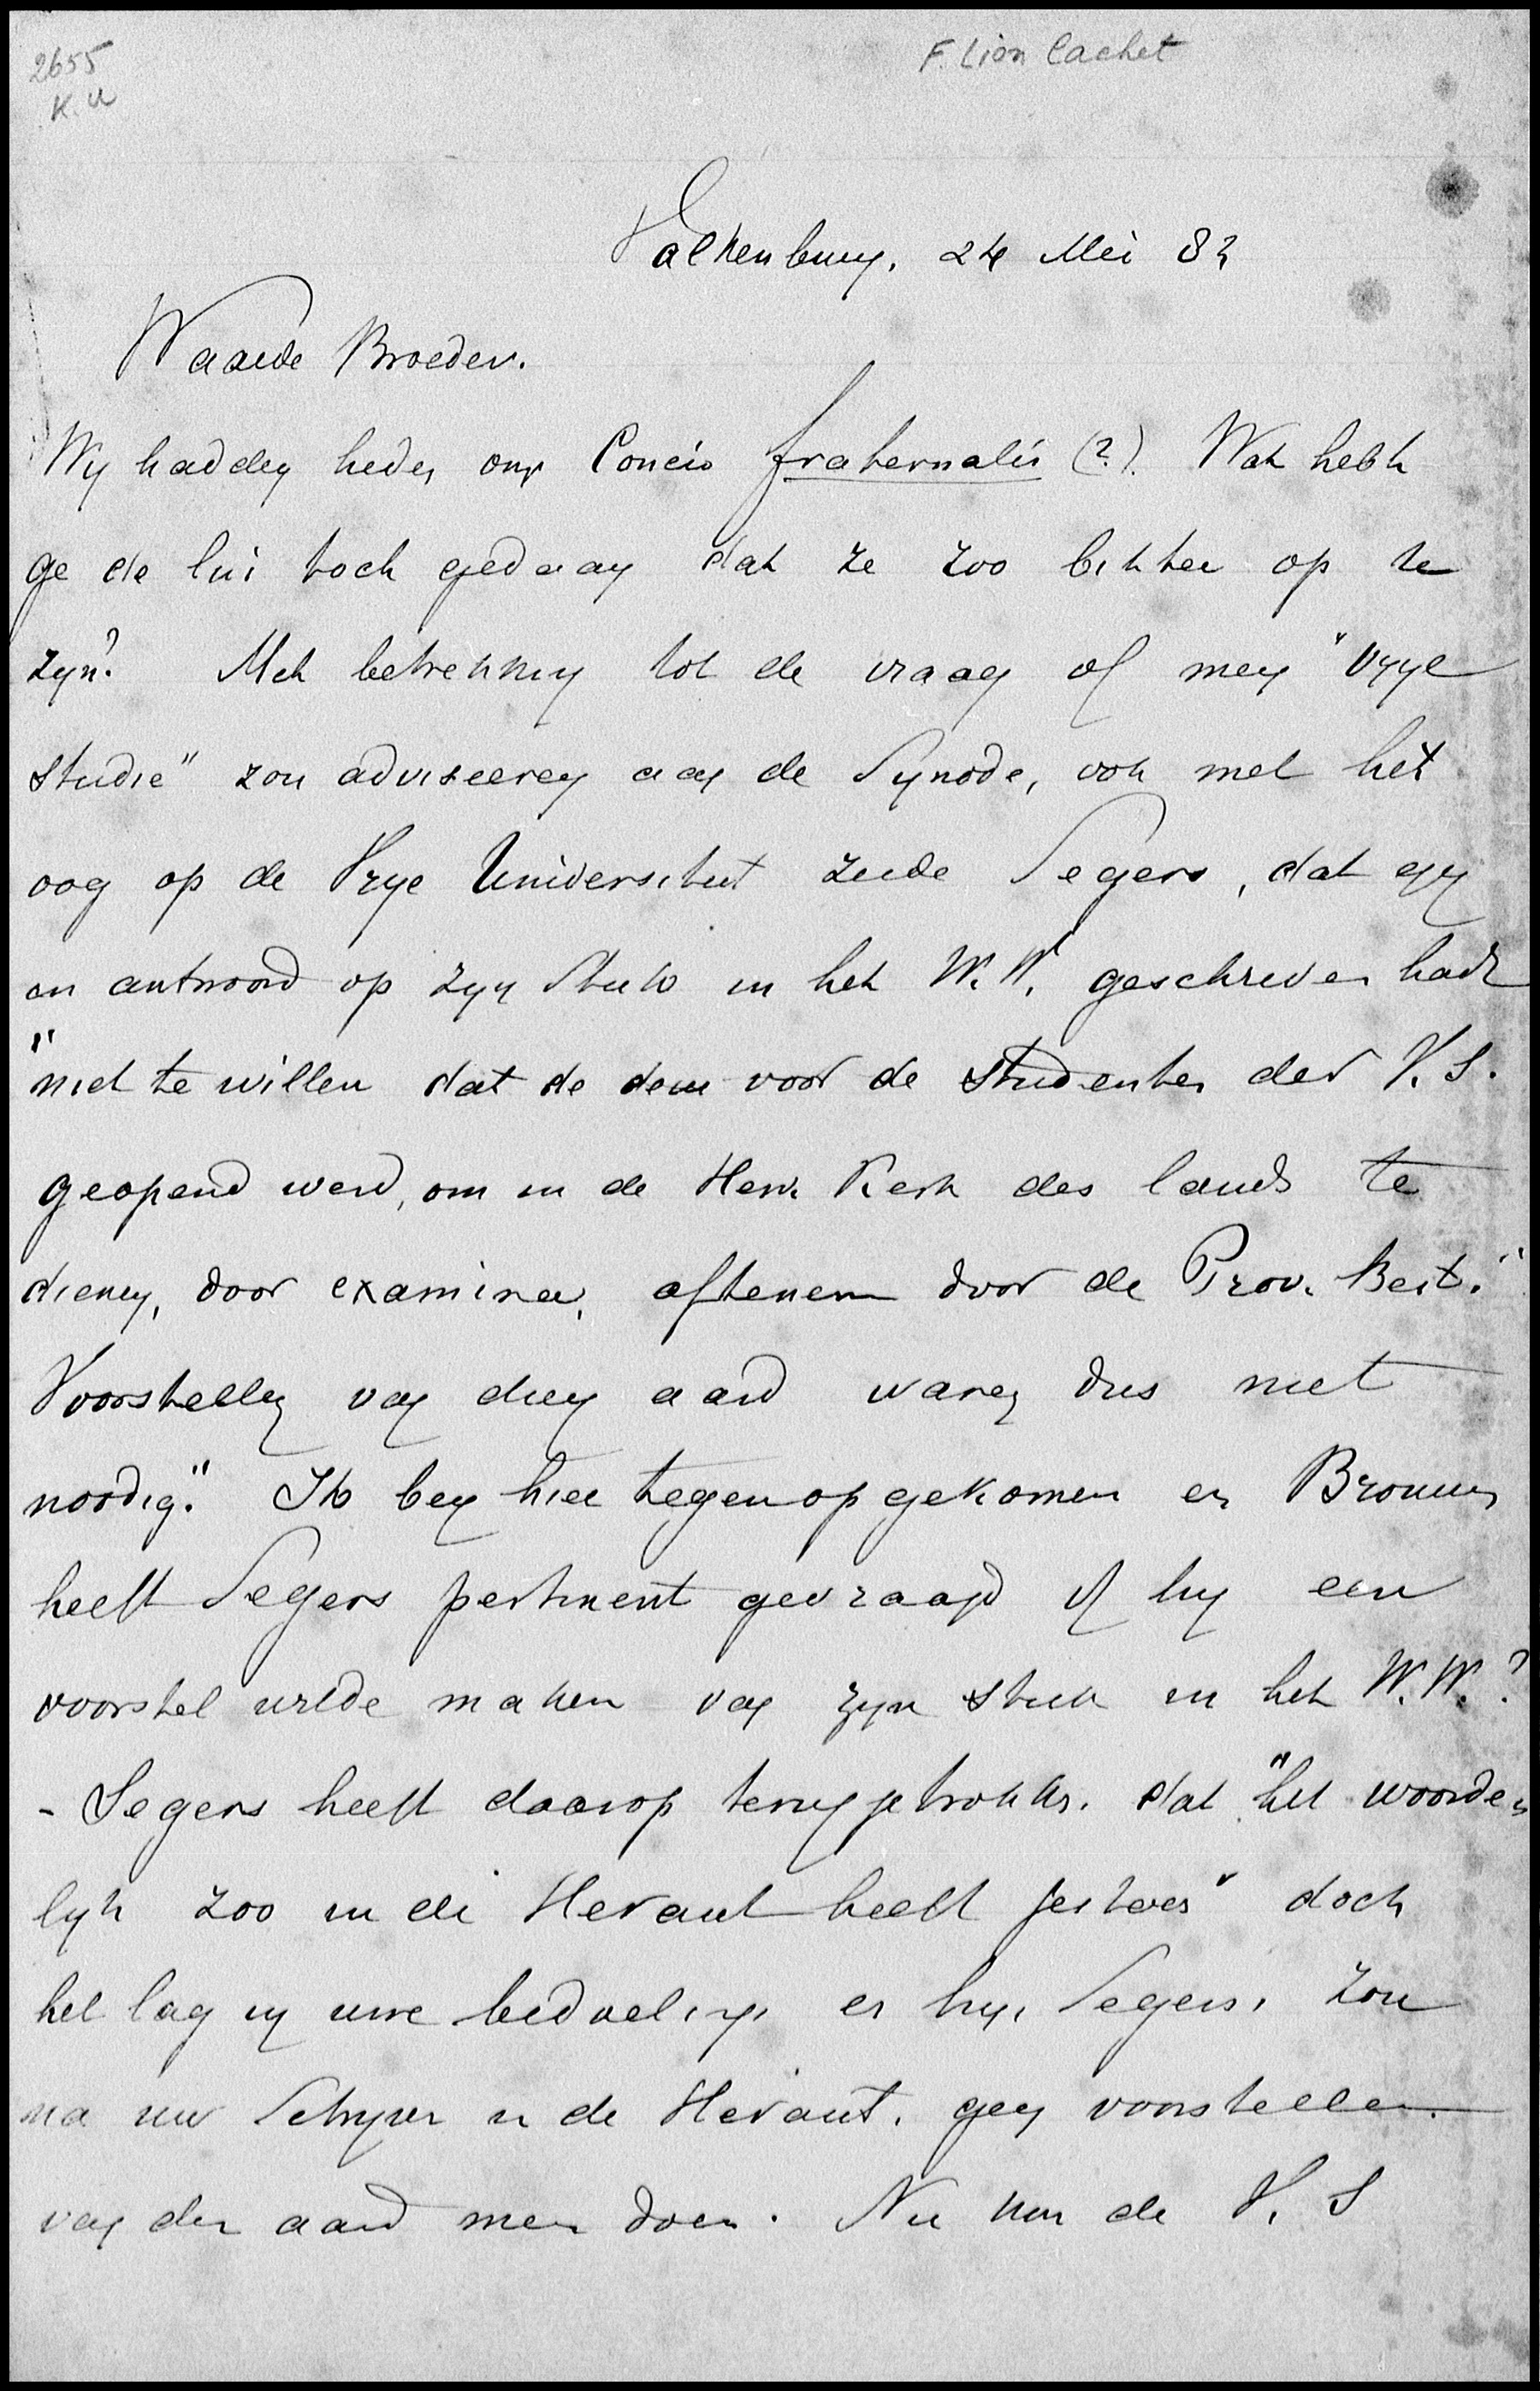 2655
K.U
F. Lion Cachet
Valkenburg, 24 Mei 82
Waarde Broeder.
Wy hadden heden onze Concio fraternalis (?). Wat hebt
ge de lui toch gedaan dat ze zoo bitter op u
zyn? Met betrekking tot de vraag of men "vrye
studie" zou adviseeren aan de Synode, ook met het
oog op de Vrye Universiteit zeide Segers, dat gy
in antwoord op zyn Stuk in het W.W. geschreven hadt
"niet te willen dat de deur voor de studenten der V.S.
geopend werd, om in de Herv. Kerk des lands te
dienen, door examina, aftenemen door de Prov. Best."
Voorstellen van dien aard waren dus niet
noodig." Ik ben hier tegenopgekomen en Brouwer
heeft Segers pertinent gevraagd of hy een
voorstel wilde maken van zyn stuk in het W.W.?
- Segers heeft daarop teruggetrokken. dat "het woorde-
lyk zoo in de Heraut heeft gestaan" doch
het lag in uwe bedoeling, en hy, Segers, zou
na uw Schryven in de Heraut, geen voorstellen
van den aard meer doen. Nu kan de V. S